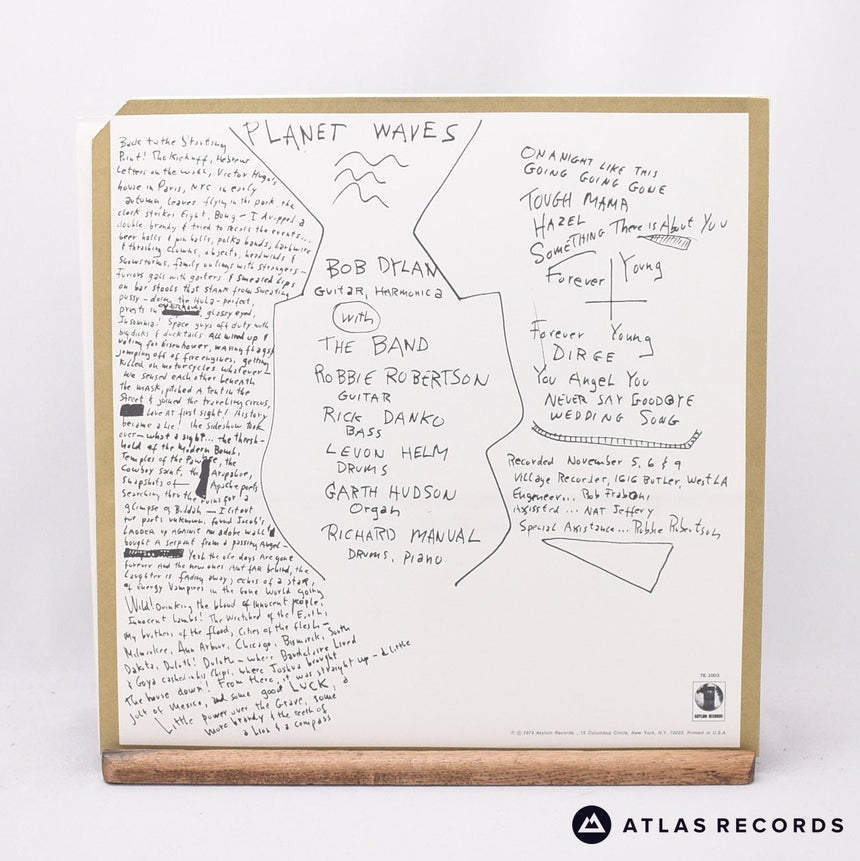 PLANET WAVES
Back to the Starting
Point! The Kickoff, Hebrew
letters on the wall, Victor Hugo's
house in Paris, NYC in early
autumn, leaves flying in the park, the
clock strikes Eight, Bong - I dropped a
double brandy & tried to recall the events...
beer halls & pin balls, polka bands, barbwire
& thrashing clowns, objects, headwinds &
snowstorms, family outings with strangers -
Furious gals with garters & smeared Lips
on bar stools that stank from sweating
pussy - doing the Hula - perfect,
priests in overhauls, glassy eyed,
Insomnia! Space guys off duty with
big dicks & ducktails All wired up &
voting for Eisenhower, waving flags &
jumping off of fire engines, getting
killed on motorcycles whatever -
We sensed each other beneath
the mask, pitched a tent in the
Street & joined the traveling circus,
Love at first sight! History
became a Lie! the sideshow took
over - what a sight... the thresh-
hold of the Modern Bomb,
Temples of the Pawnee, the
Cowboy saint, the Arapahoe,
snapshots of Apache poets
searching thru the ruins for a
glimpse of Buddah - I lit out
for parts unknown, found Jacob's
Ladder up against an adobe wall &
bought A serpent from a passing Angel -
Yeah the ole days Are gone
forever And the new ones Aint fAR behind, the
Laughter is fAding away, echos of a staR,
of Energy Vampires in the Gone World going
Wild! Drinking the blood of innocent people,
Innocent Lambs! The Wretched of the Earth,
My brothers of the flood, Cities of the flesh -
Milwaukee, Ann Arbor, Chicago, Bismarck, South
Dakota, Duluth! Duluth - where Baudelaire Lived
& Goya cashed in his Chips, where Joshua brought
The house down! From there, it was straight up - a little
jolt of Mexico, and some good LUCK, a
Little power over the Grave, some
more brandy & the teeth of
a Lion & a compass
BOB DYLAN
Guitar, HARMONICA
With
THE BAND
ROBBIE ROBERTSON
GUITAR
RICK DANKO
BASS
LEVON HELM
DRUMS
GARTH HUDSON
Organ
RICHARD MANUAL
DRUMS, PIANO
ON A NIGHT LIKE THIS
GOING GOING GONE
TOUGH MAMA
HAZEL
SOMETHING There is About You
Forever Young
Forever Young
DIRGE
You Angel You
NEVER SAY GOODBYE
WEDDING SONG
Recorded November 5, 6 & 9
Village Recorder, 1616 BUTLER, West LA
Engeneer... Rob Fraboni
Assisted ... NAT Jeffery
Special Assistance... Robbie Robertson
7E-1003
ASYLUM RECORDS
℗ © 1974 Asylum Records, 15 Columbus Circle, New York, N.Y. 10023. Printed in U.S.A.
ATLAS RECORDS